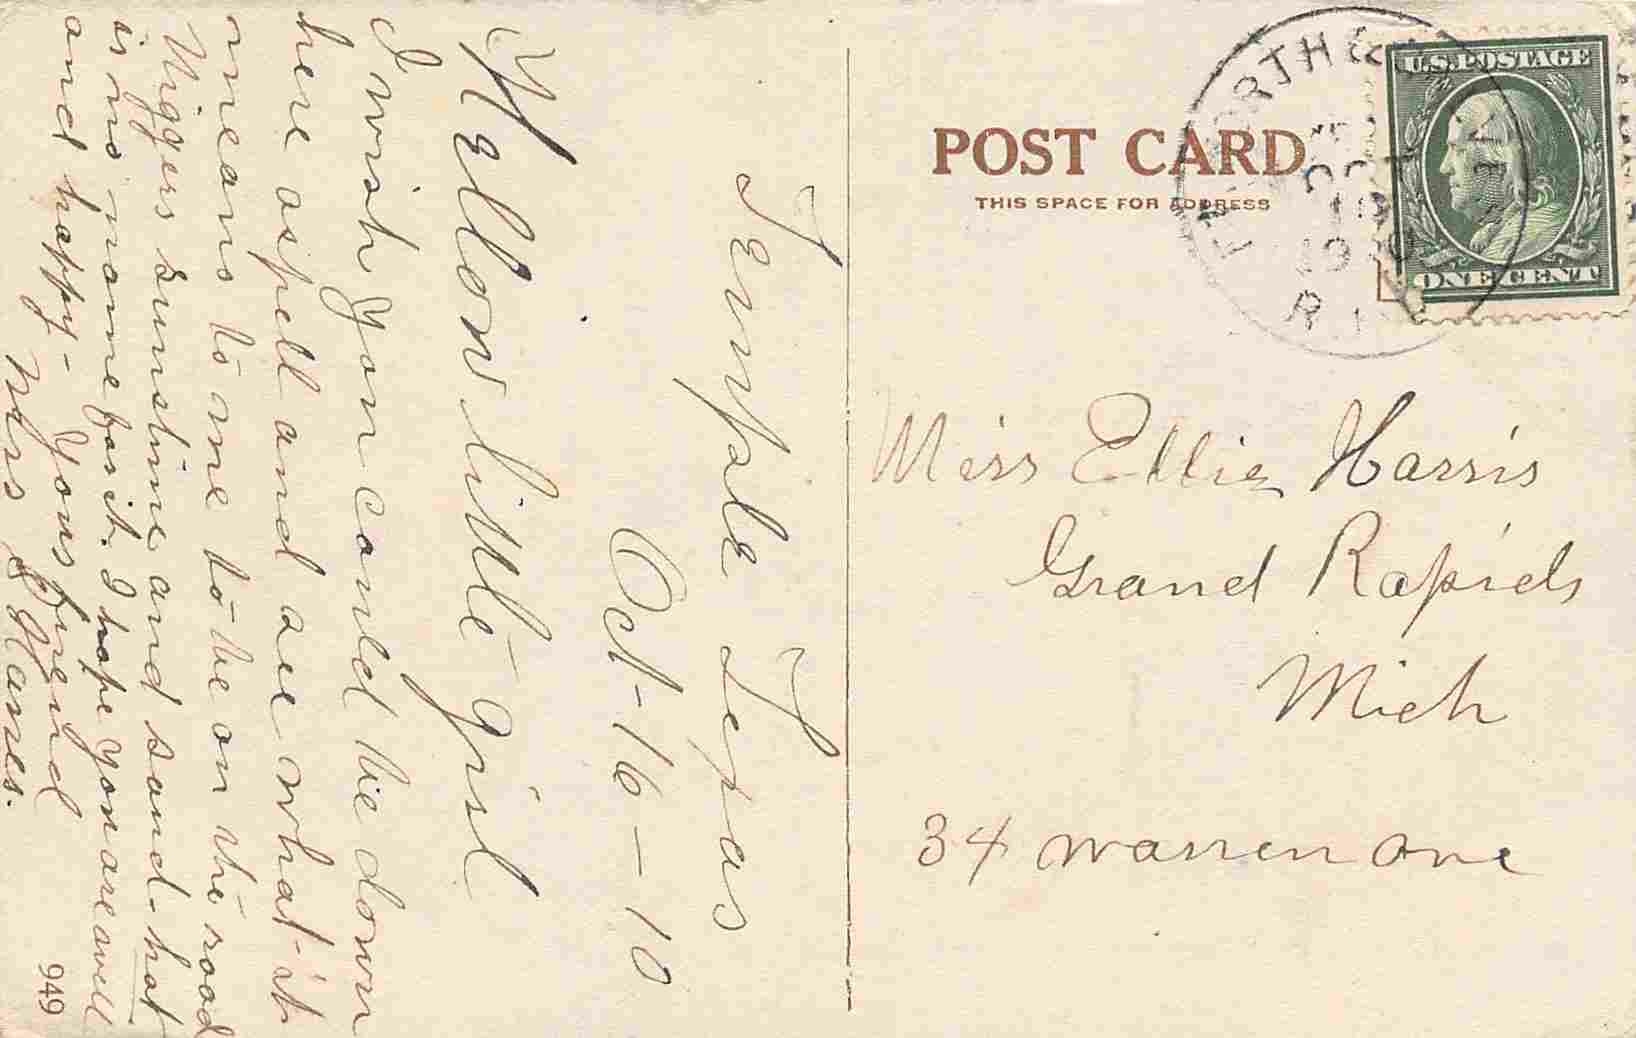 Temple Texas
Oct-16-10
Hellow little girl
I wish you could be down
here aspell and see what-it
means to me to be on the road
Niggers sunshine and sand-hot
is no name for it. I hope you are well
and happy- Yours friend
Mrs S Hanes.
949
POST CARD
THIS SPACE FOR ADDRESS
WORTH &
U.S. POSTAGE
ONE CENT
Miss Ellie Harris
Grand Rapids
Mich
34 Warren Ave